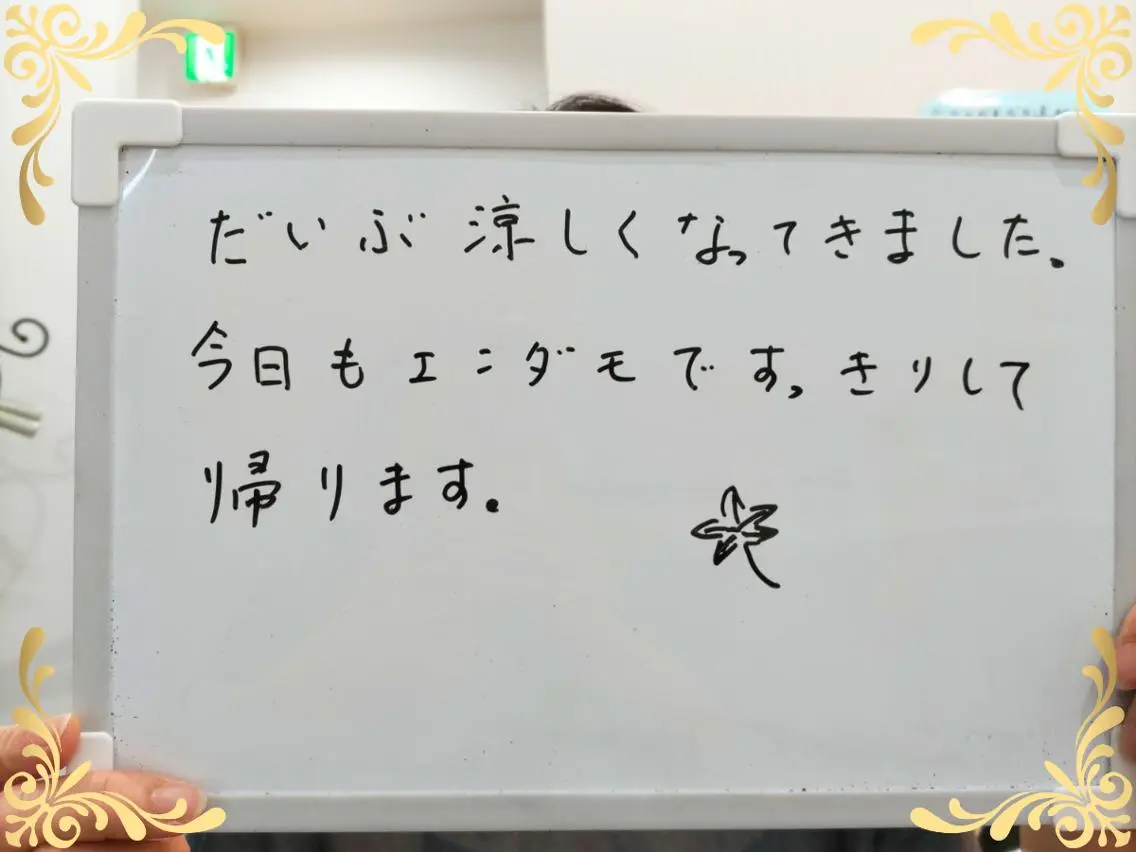 だいぶ涼しくなってきました。
今日もエニダモです。きりして
帰ります。